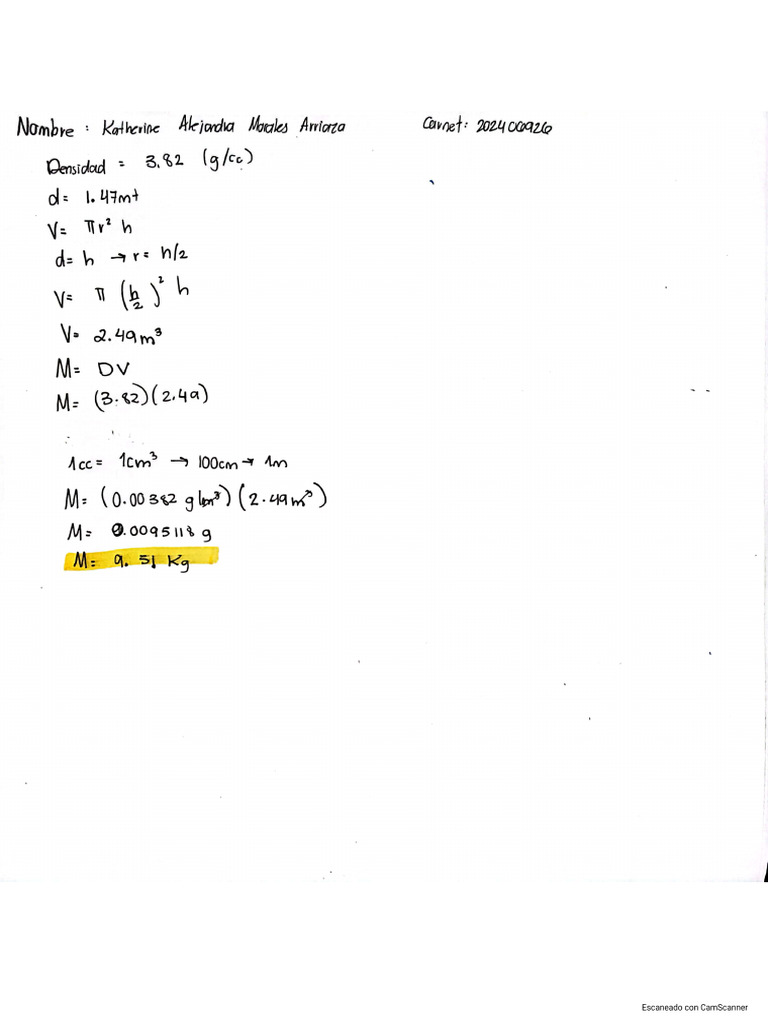 Nombre : Katherine Alejandra Morales Arriaza Carnet: 202400926
Densidad = 3.82 (g/cc)
d= 1.47mt
V= πr² h
d= h → r= h/2
V= π (h/2)² h
V= 2.49m³
M= DV
M= (3.82)(2.49)
1cc= 1cm³ → 100cm → 1m
M= (0.00382 g/m³)(2.49m³)
M= 0.0095118 g
M= 9.51 Kg
Escaneado con CamScanner